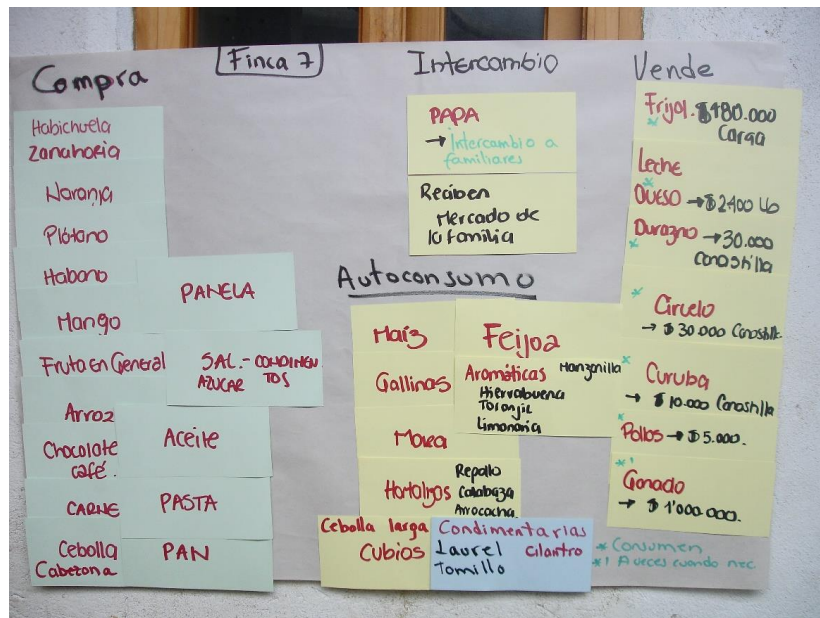 Finca 7
Compra
Habichuela
Zanahoria
Naranja
Plátano
Habano
Mango
Fruta en General
Arroz
Chocolate
café.
CARNE
Cebolla
Cabezona
PANELA
SAL.- CONDIMEN
AZUCAR TOS
Aceite
PASTA
PAN
Intercambio
PAPA
→ Intercambio a
familiares
Reciben
Mercado de
la familia
Autoconsumo
Maíz
Gallinas
Mora
Hortalizas
Repollo
Calabaza
Arracacha.
Cebolla larga
Cubios
Feijoa
Aromáticas Manzanilla
Hierrabuena
Toronjil
Limonaria
Condimentarias
Laurel cilantro
Tomillo
Vende
Frijol. $480.000
* Carga
Leche
*
QUESO → $2400 Lb
Durazno → 30.000
* Canastilla
* Ciruelo
→ $30.000 Canastilla
* Curuba
→ $10.000 Canastilla
* Pollos → $5.000.
*'
Ganado
→ $1'000.000.
* Consumen
*' A veces cuando nec